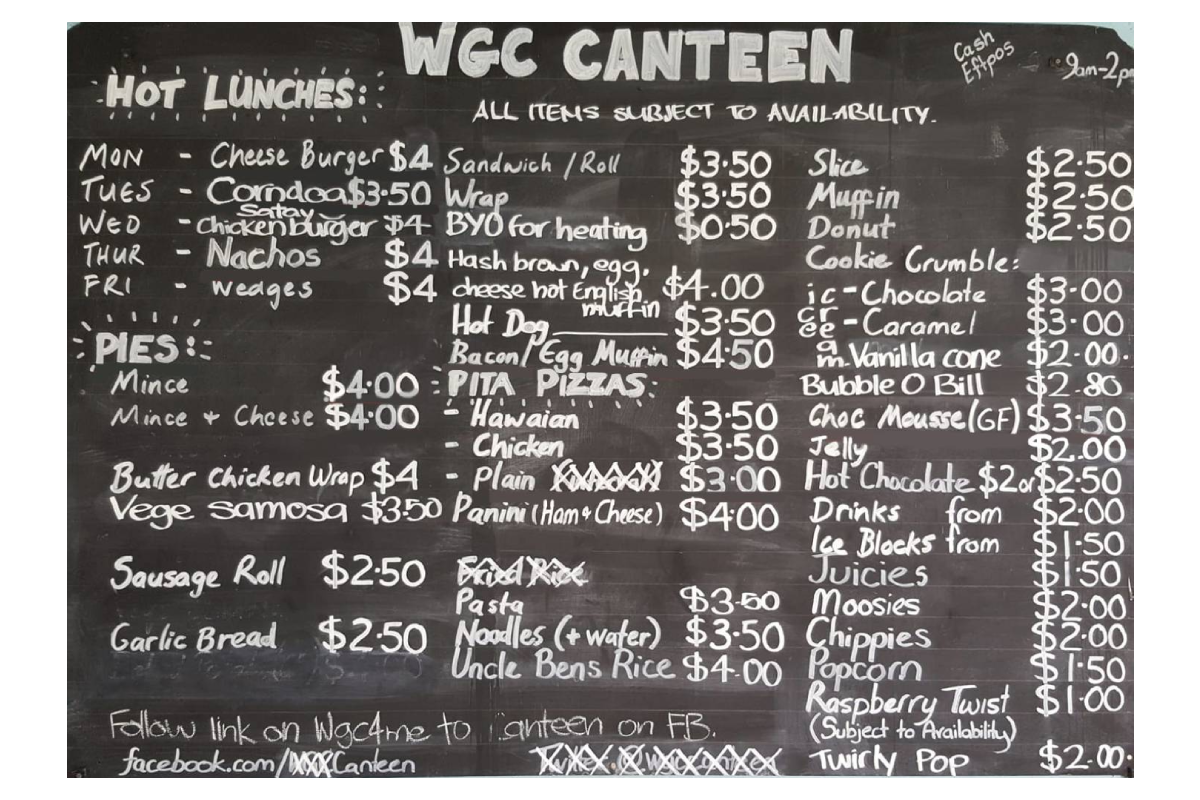 WGC CANTEEN
Cash
Eftpos
9am-2pm
ALL ITEMS SUBJECT TO AVAILABILITY.
HOT LUNCHES:
MON - Cheese Burger $4
TUES - Corndog $3.50
WED - Satay Chicken burger $4
THUR - Nachos $4
FRI - wedges $4
PIES:
Mince $4.00
Mince + Cheese $4.00
Butter Chicken Wrap $4
Vege samosa $3.50
Sausage Roll $2.50
Garlic Bread $2.50
Sandwich / Roll $3.50
Wrap $3.50
BYO for heating $0.50
Hash brown, egg,
cheese hot English muffin $4.00
Hot Dog $3.50
Bacon / Egg Muffin $4.50
PITA PIZZAS:
- Hawaian $3.50
- Chicken $3.50
- Plain $3.00
Panini (Ham + Cheese) $4.00
Fried Rice
Pasta $3.50
Noodles (+ water) $3.50
Uncle Bens Rice $4.00
Slice $2.50
Muffin $2.50
Donut $2.50
Cookie Crumble:
ice cream
- Chocolate $3.00
- Caramel $3.00
Vanilla cone $2.00.
Bubble O Bill $2.80
Choc Mousse (GF) $3.50
Jelly $2.00
Hot Chocolate $2 or $2.50
Drinks from $2.00
Ice Blocks from $1.50
Juicies $1.50
Moosies $2.00
Chippies $2.00
Popcorn $1.50
Raspberry Twist $1.00
(Subject to Availability)
Twirly Pop $2.00.
Follow link on Wgc4me to anteen on FB.
facebook.com/ Canteen